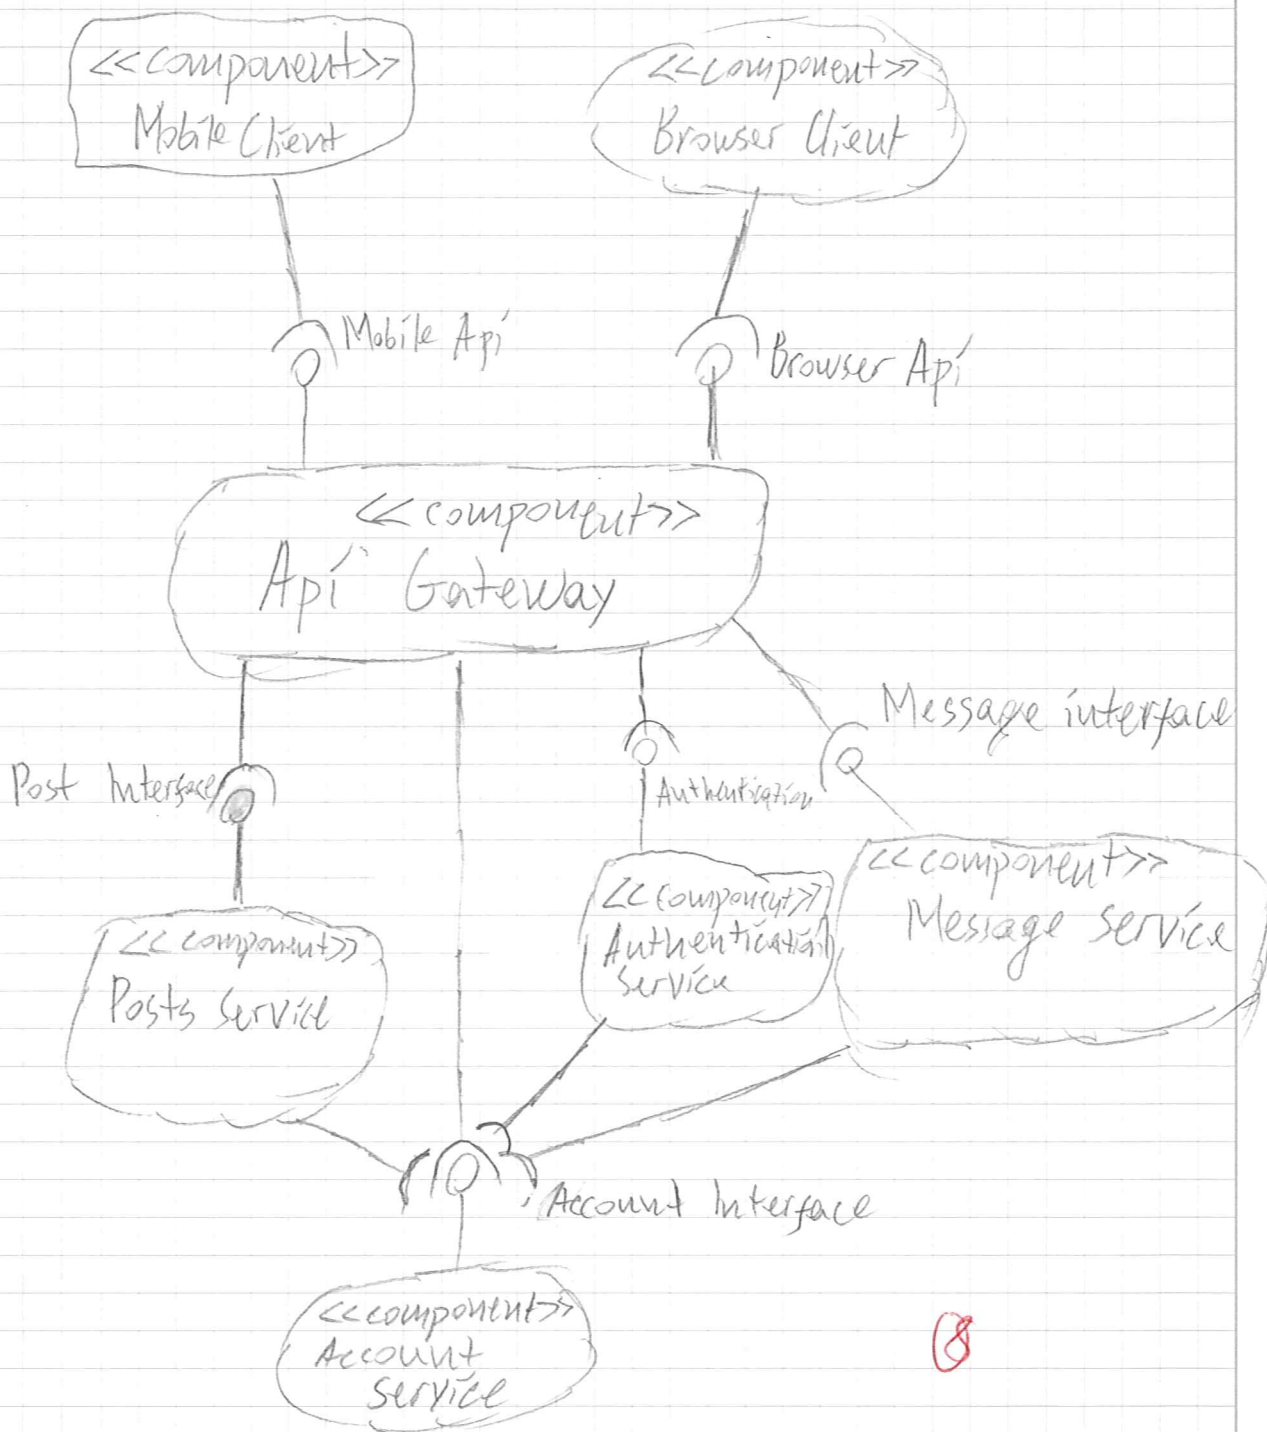 <<component>>
Mobile Client
<<component>>
Browser Client
Mobile Api
Browser Api
<<component>>
Api Gateway
Message interface
Post Interface
Authentication
<<component>>
Posts Service
<<component>>
Authentication
Service
<<component>>
Message Service
Account Interface
<<component>>
Account
Service
8